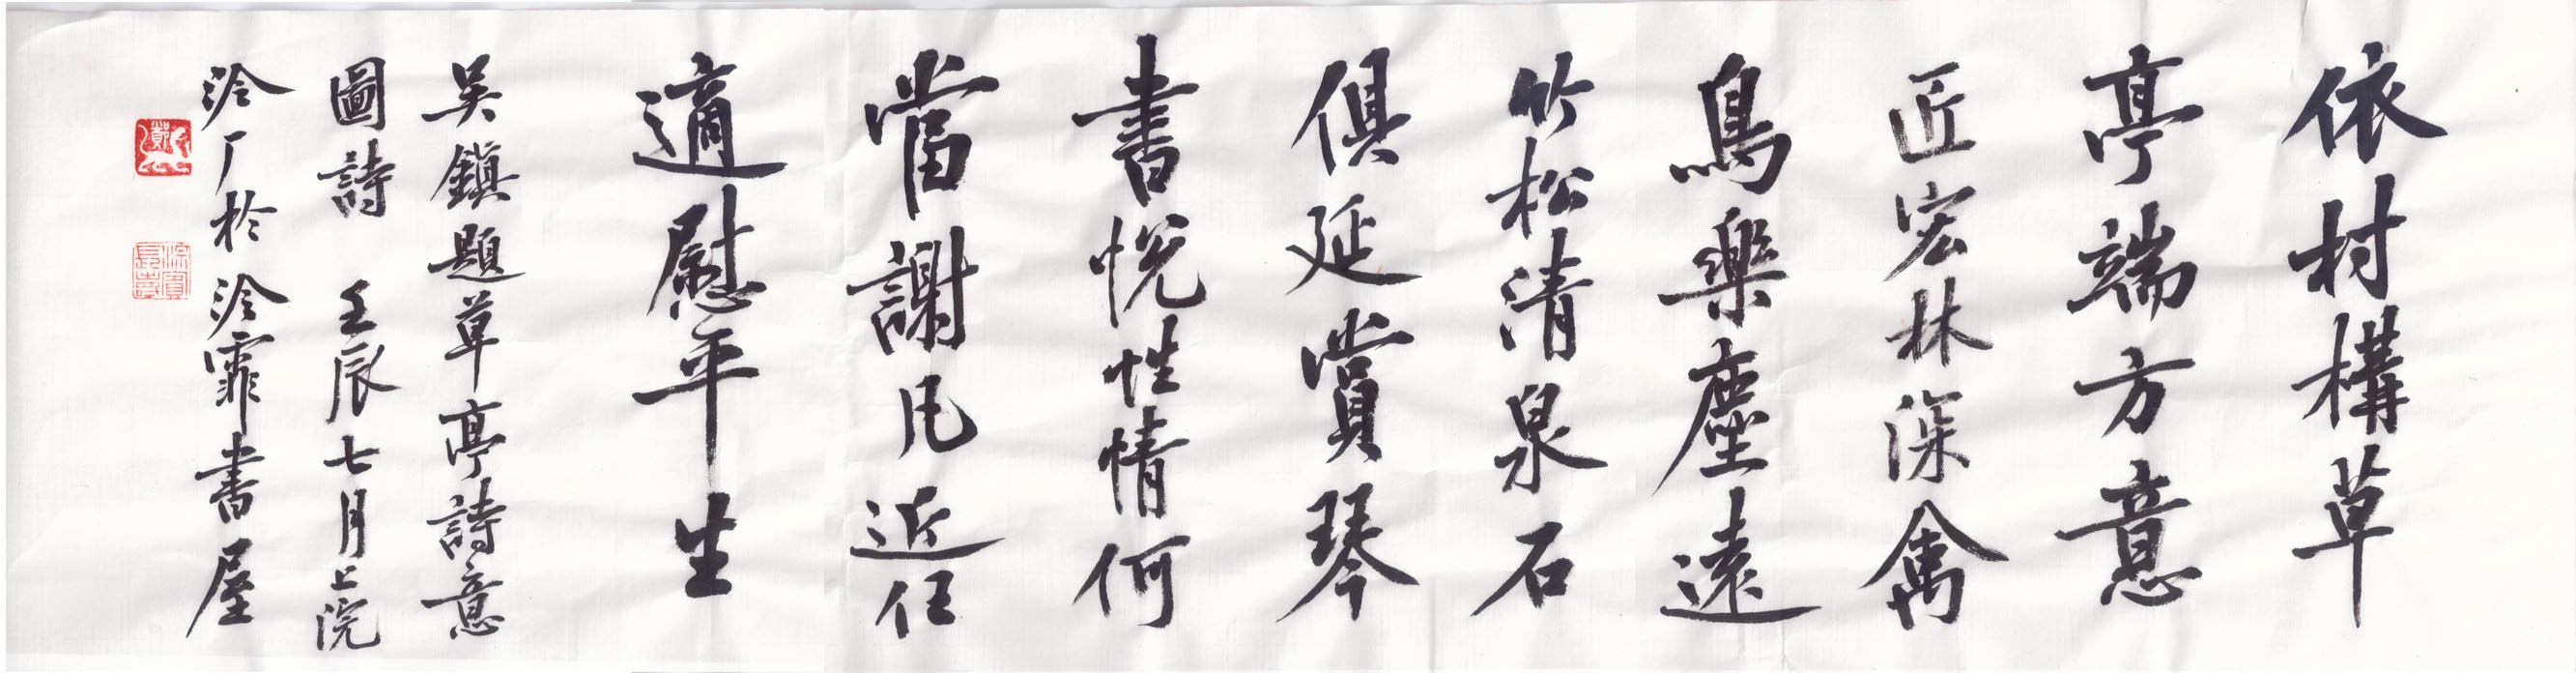 依村構草
亭端方意
匠宏林深禽
鳥樂塵遠
竹松清泉石
俱延賞琴
書悅性情何
當謝凡近任
適慰平生
吳鎮題草亭詩意
圖詩 壬辰七月上浣
泠厂於泠霏書屋